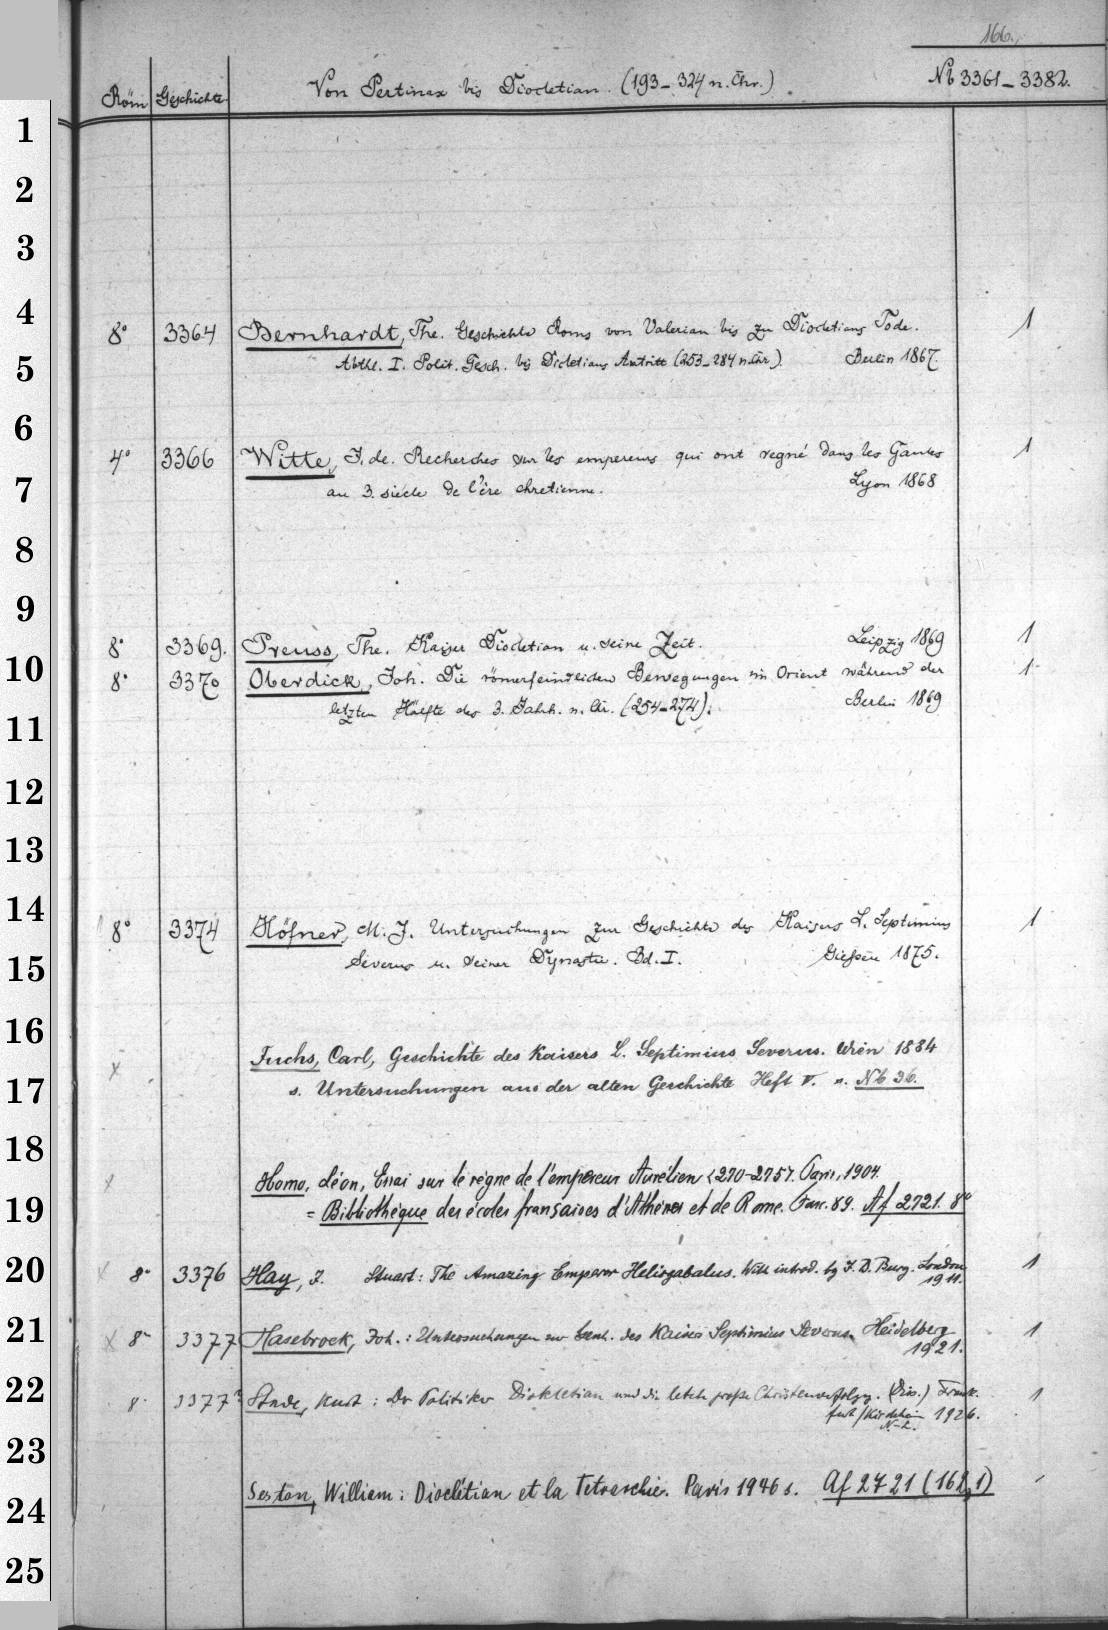 166.
Röm Geschichte Von Pertinax bis Diocletian. (193–324 n. Chr.) No 3361–3382.
1
2
3
4
8° 3364 Bernhardt, The. Geschichte Roms von Valerian bis zu Diocletians Tode. 1
Abthl. I. Polit. Gesch. bis Dicletians Antritt (253–284 n. Chr.) Berlin 1867
5
6
4° 3366 Witte, J. de. Recherches sur les empereurs qui ont regné dans les Gaules 1
7
au 3. siécle de l'ère chretienne. Lyon 1868
8
9
8° 3369. Preuss, The. Kaiser Diocletian u. seine Zeit. Leipzig 1869 1
10
8° 3370 Oberdick, Joh. Die römerfeindlichen Bewegungen im Orient während der 1
letzten Hälfte des 3. Jahrh. n. Chr. (254–274). Berlin 1869
11
12
13
14
8° 3374 Höfner, M. J. Untersuchungen zur Geschichte des Kaisers L. Septimius 1
15
Severus u. seiner Dynastie. Bd. I. Gießen 1875.
16
x Fuchs, Carl, Geschichte des Kaisers L. Septimius Severus. Wien 1884
17
s. Untersuchungen aus der alten Geschichte Heft V. No 36.
18
x Homo, Léon, Essai sur le règne de l'empereur Aurélien <270–275>. Paris, 1904.
19
= Bibliothéque des écoles françaises d'Athènes et de Rome. Fasc. 89. Af 2721. 8°
20
x 8° 3376 Hay, J. Stuart: The Amazing Emperor Heliogabalus. With introd. by J. B. Bury. London 1
1911.
21
x 8° 3377 Hasebroek, Joh.: Untersuchungen zur Gesch. des Kaisers Septimius Severus. Heidelberg 1
1921.
22
8° 3377 Stade, Kurt: Der Politiker Diokletian und die letzte große Christenverfolgg. (Diss.) Frank- 1
furt / 1926.
23
Seston, William: Dioclétian et la Tetrarchie. Paris 1946 s. Af 2721 (162,1)
24
25